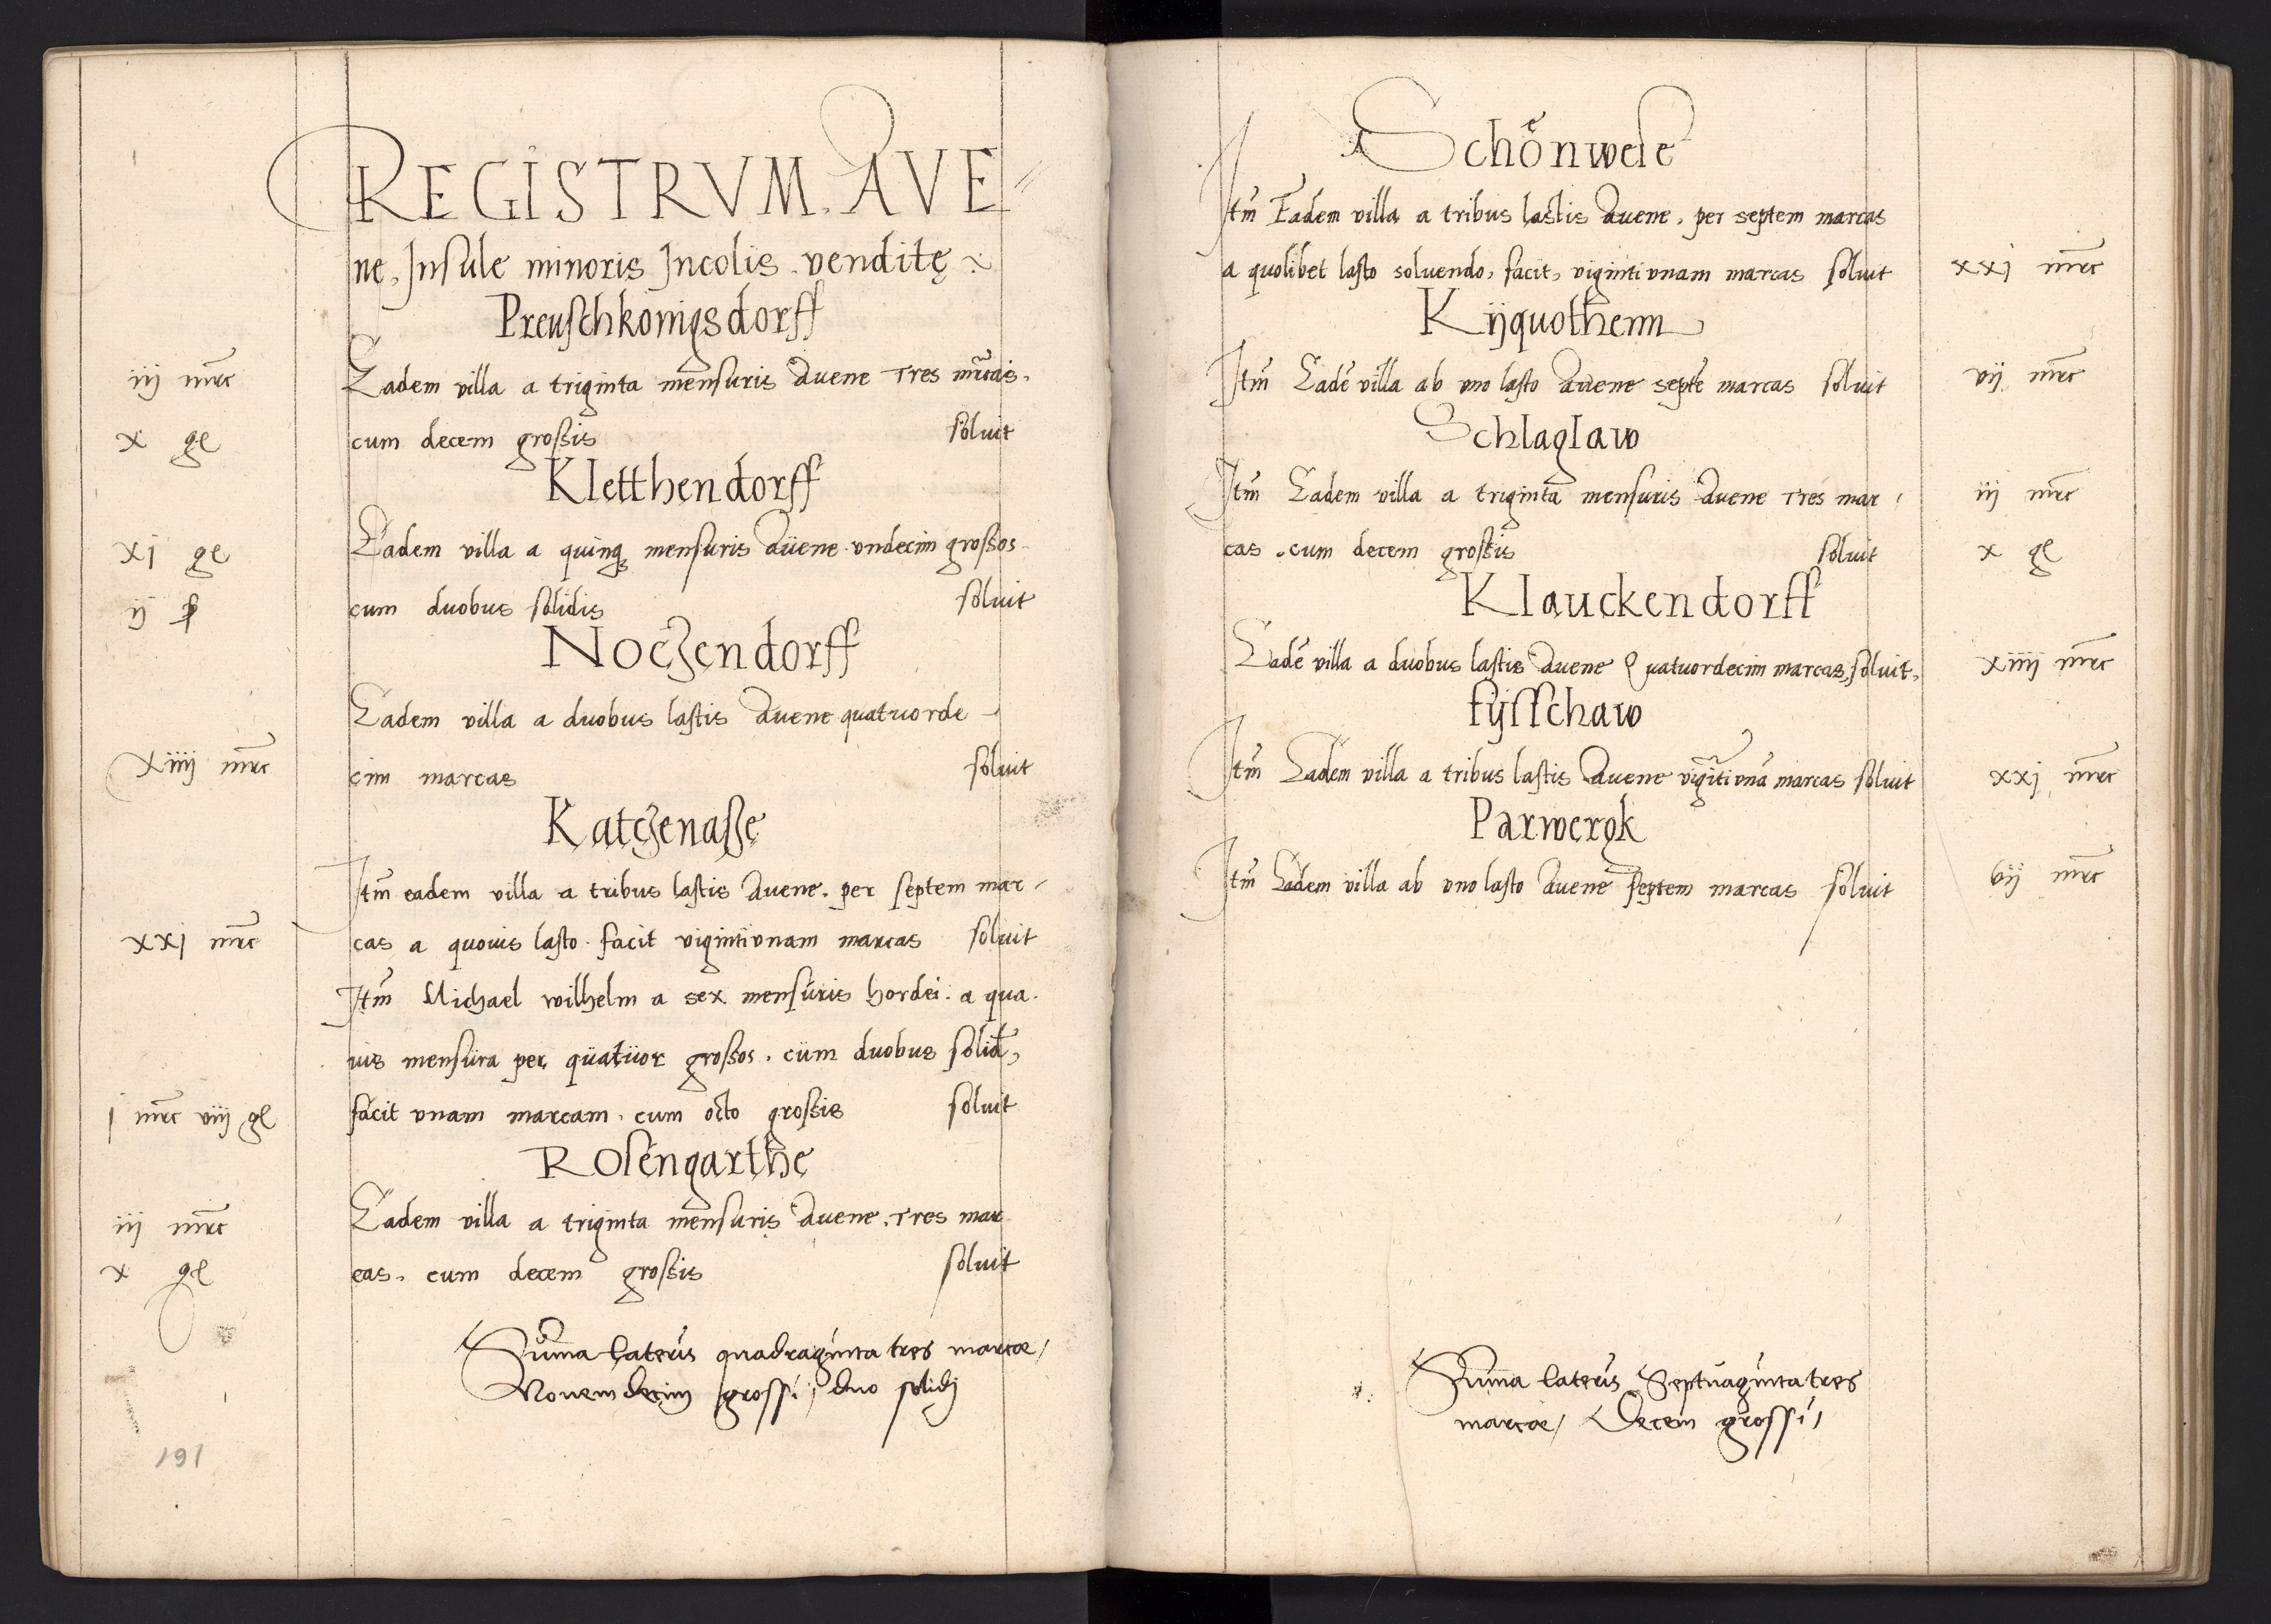 REGISTRVM. AVE=
ne, Insule minoris Incolis. venditę
Preuschkonigsdorff
iij mrc Eadem villa a triginta mensuris Avene Tres mrcas.
x gl cum decem grossis soluit
Kletthendorff
xj gl Eadem villa a quinq; mensuris avene. vndecim grossos
ij ß cum duobus solidis soluit
Noczendorff
Eadem villa a duobus lastis Avene quatuorde-
xiiij mrc cim marcas soluit
Katczenasze
Itm eadem villa a tribus lastis Avene. per septem mar-
xxj mrc cas a quouis lasto. facit vigintivnam marcas soluit
Itm Michael wilhelm a sex mensuris hordei. a qua.
uis mensura per quatuor grossos. cum duobus solid,
j mrc viij gl facit vnam marcam. cum octo grossis soluit
Rosengarthe
iij mrc Eadem villa a triginta mensuris Avene. Tres mar
x gl cas. cum decem grossis soluit
Suma Lateris quadraginta tres marcæ/
Novemdecim grossi/ duo solidj
191
Schönwese
Itm Eadem villa a tribus lastis Avene. per septem marcas
a quolibet lasto soluendo, facit, vigintivnam marcas soluit xxj mrc
Kÿquothenn
Itm Eadē villa ab vno lasto Avene septē marcas soluit vij mrc
Schlaglaw
Itm Eadem villa a triginta mensuris Avene Tres mar/ iij mrc
cas. cum decem grossis soluit x gl
Klauckendorff
Eadē villa a duobus lastis Avene Quatuordecim marcas, soluit, xiiij mrc
fÿsschaw
Itm Eadem villa a tribus lastis Avene vigītivnā marcas soluit xxj mrc
Parwergk
Itm Eadem villa ab vno lasto Avene septem marcas soluit vij mrc
Suma Lateris Septuaginta tres
marcæ/ Decem grossi/